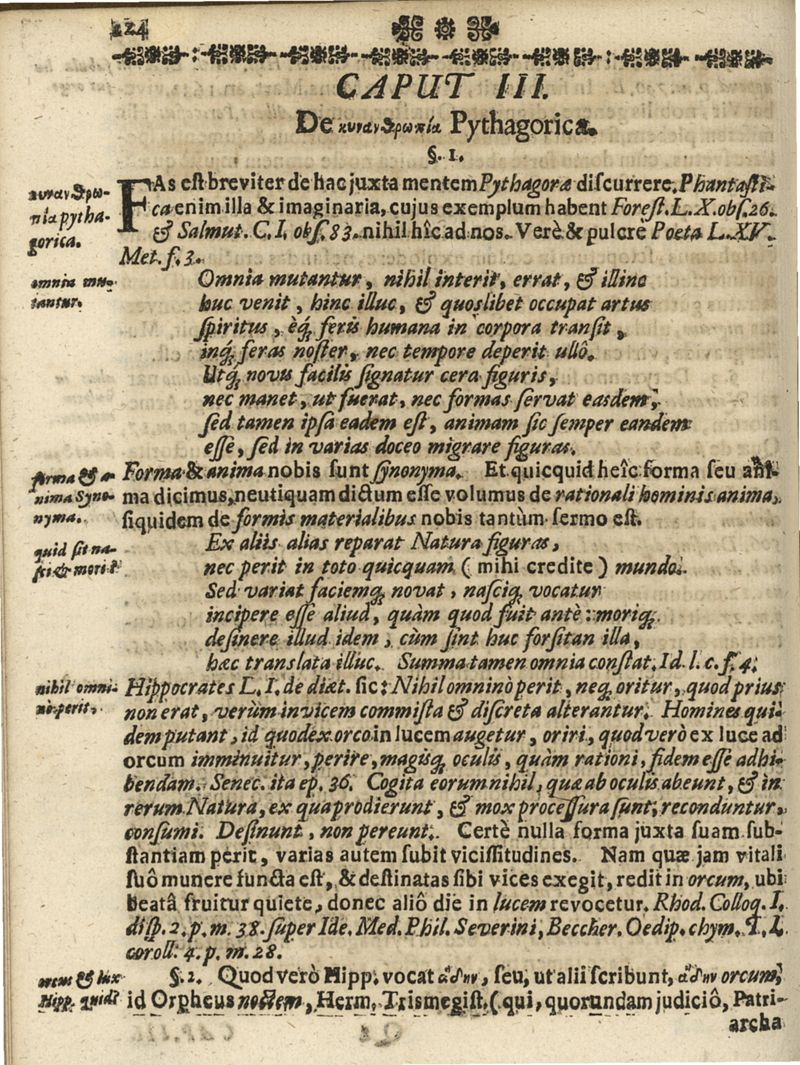 224
CAPUT III.
De κυνανθρωπία Pythagorica.
§. 1.
κυναν θρω-
πία pytha-
gorica.
FAs eſt breviter de hac juxta mentem Pythagoræ diſcurrere. Phantaſti-
ca enim illa & imaginaria, cujus exemplum habent Foreſt. L. X. obſ. 26.
& Salmut. C. I. obſ. 83. nihil hîc ad nos. Verè & pulcrè Poeta L. XV.
Met. f. 3.
omnia mu-
tantur.
Omnia mutantur, nihil interit, errat, & illinc
huc venit, hinc illuc, & quoslibet occupat artus
ſpiritus, èq́; feris humana in corpora tranſit,
inq́; feras noſter, nec tempore deperit ullô.
Utq́; novis facilis ſignatur cera figuris,
nec manet, ut fuerat, nec formas ſervat easdem,
ſed tamen ipſa eadem eſt, animam ſic ſemper eandem
eſſe, ſed in varias doceo migrare figuras.
forma & a-
nima Syno-
nyma.
Forma & anima nobis ſunt ſynonyma. Et quicquid heîc forma ſeu ani-
ma dicimus, neutiquam dictum eſſe volumus de rationali hominis anima,
ſiquidem de formis materialibus nobis tantùm ſermo eſt.
quid ſit na-
ſci & mori?
Ex aliis alias reparat Natura figuras,
nec perit in toto quicquam (mihi credite) mundo.
Sed variat faciemq; novat, naſciq; vocatur
incipere eſſe aliud, quàm quod fuit antè: moriq;
deſinere illud idem, cùm ſint huc forſitan illa,
hæc translata illuc. Summa tamen omnia conſtat. Id. l. c. f. 4.
nihil omni-
nò perit.
Hippocrates L. I. de diæt. ſic: Nihil omninò perit, neq; oritur, quod prius
non erat, verùm invicem commiſta & diſcreta alterantur. Homines qui-
dem putant, id quod ex orco in lucem augetur, oriri, quod verò ex luce ad
orcum imminuitur, perire, magisq; oculis, quàm rationi, fidem eſſe adhi-
bendam. Senec. ita ep. 36. Cogita eorum nihil, quæ ab oculis abeunt, & in
rerum Natura, ex qua prodierunt, & mox proceſſura ſunt, reconduntur,
conſumi. Deſinunt, non pereunt. Certè nulla forma juxta ſuam ſub-
ſtantiam perit, varias autem ſubit viciſſitudines. Nam quæ jam vitali
ſuô munere functa eſt, & deſtinatas ſibi vices exegit, redit in orcum, ubi
beatâ fruitur quiete, donec aliô die in lucem revocetur. Rhod. Colloq. I.
diſp. 2. p. m. 38. ſuper Ide. Med. Phil. Severini, Beccher. Oedip. chym. T. I.
coroll. 4. p. m. 28.
orcus & lux
Hipp. quid?
§. 2. Quod verò Hipp. vocat ἅδην, ſeu, ut alii ſcribunt, ἄδην orcum,
id Orpheus noctem, Herm. Trismegiſt. (qui, quorundam judiciô, Patri-
archa